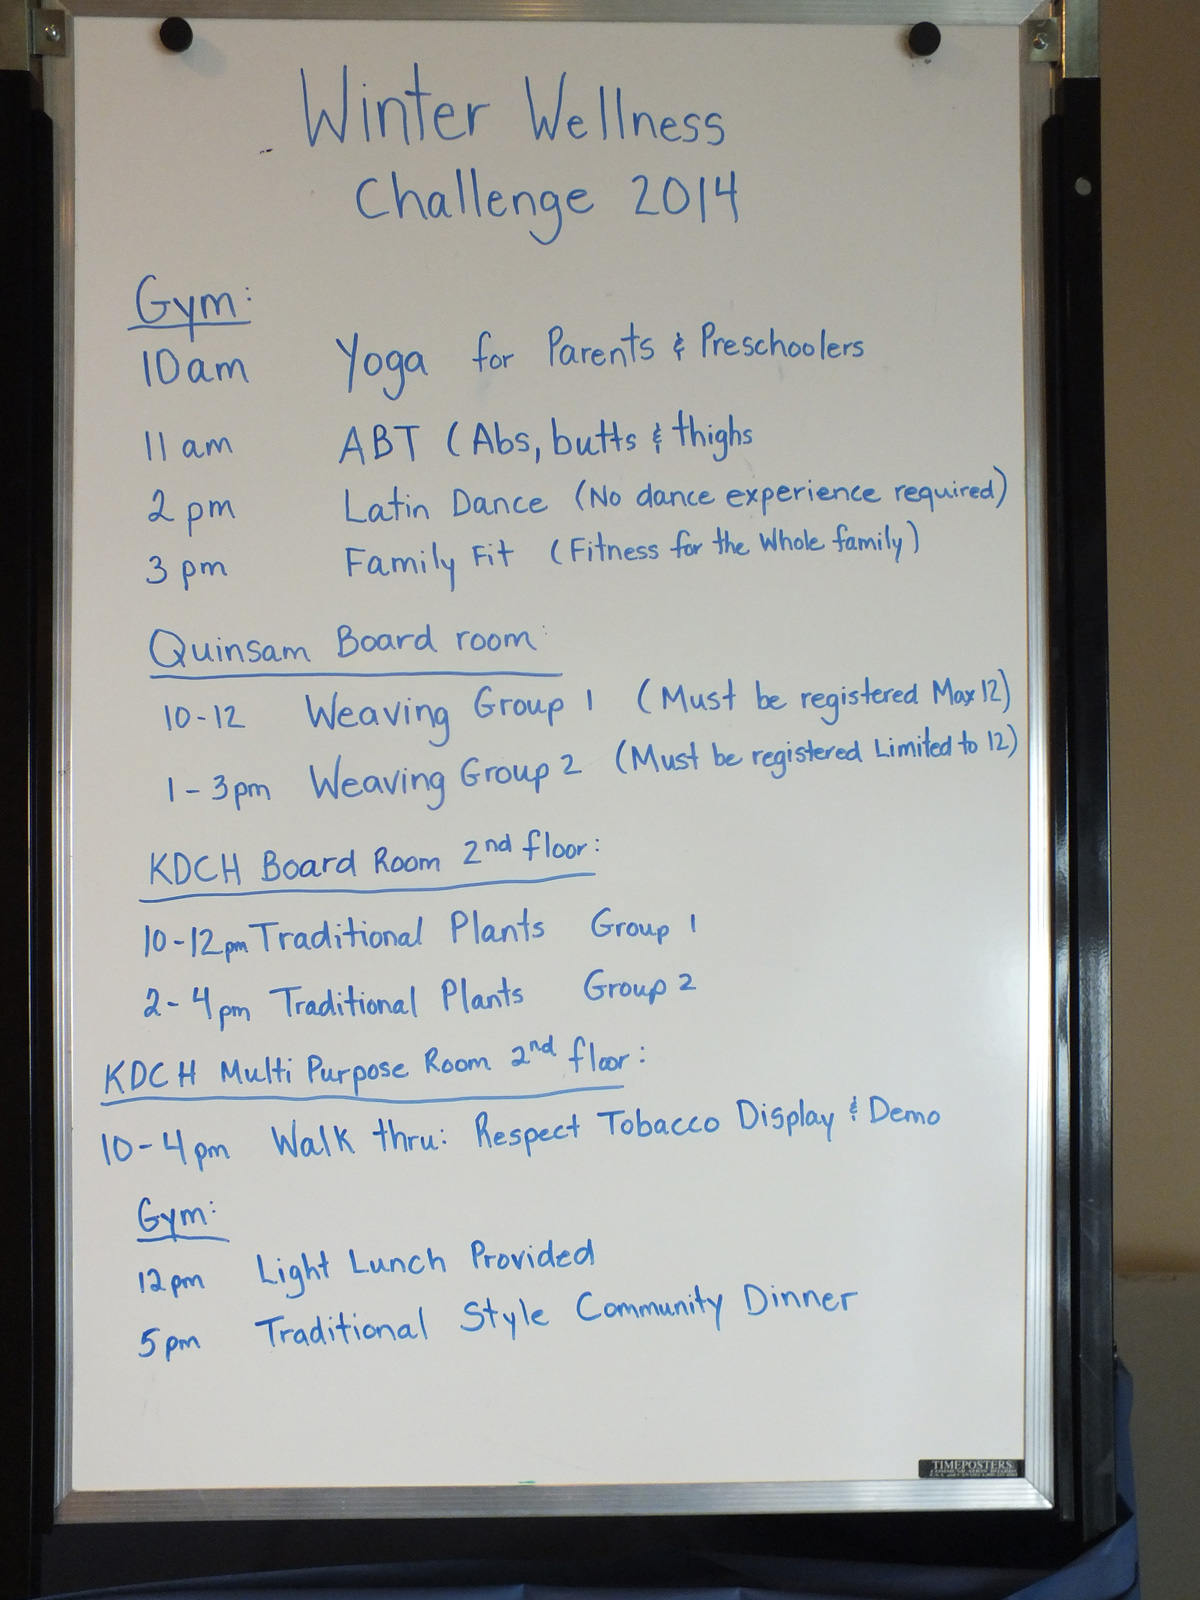 Winter Wellness
Challenge 2014
Gym:
10am Yoga for Parents & Preschoolers
11am ABT (Abs, butts & thighs
2pm Latin Dance (No dance experience required)
3pm Family Fit (Fitness for the Whole family)
Quinsam Board room:
10-12 Weaving Group 1 (Must be registered Max 12)
1-3pm Weaving Group 2 (Must be registered Limited to 12)
KDCH Board Room 2nd floor:
10-12pm Traditional Plants Group 1
2-4pm Traditional Plants Group 2
KDCH Multi Purpose Room 2nd floor:
10-4pm Walk thru: Respect Tobacco Display & Demo
Gym:
12pm Light Lunch Provided
5pm Traditional Style Community Dinner
TIMEPOSTERS